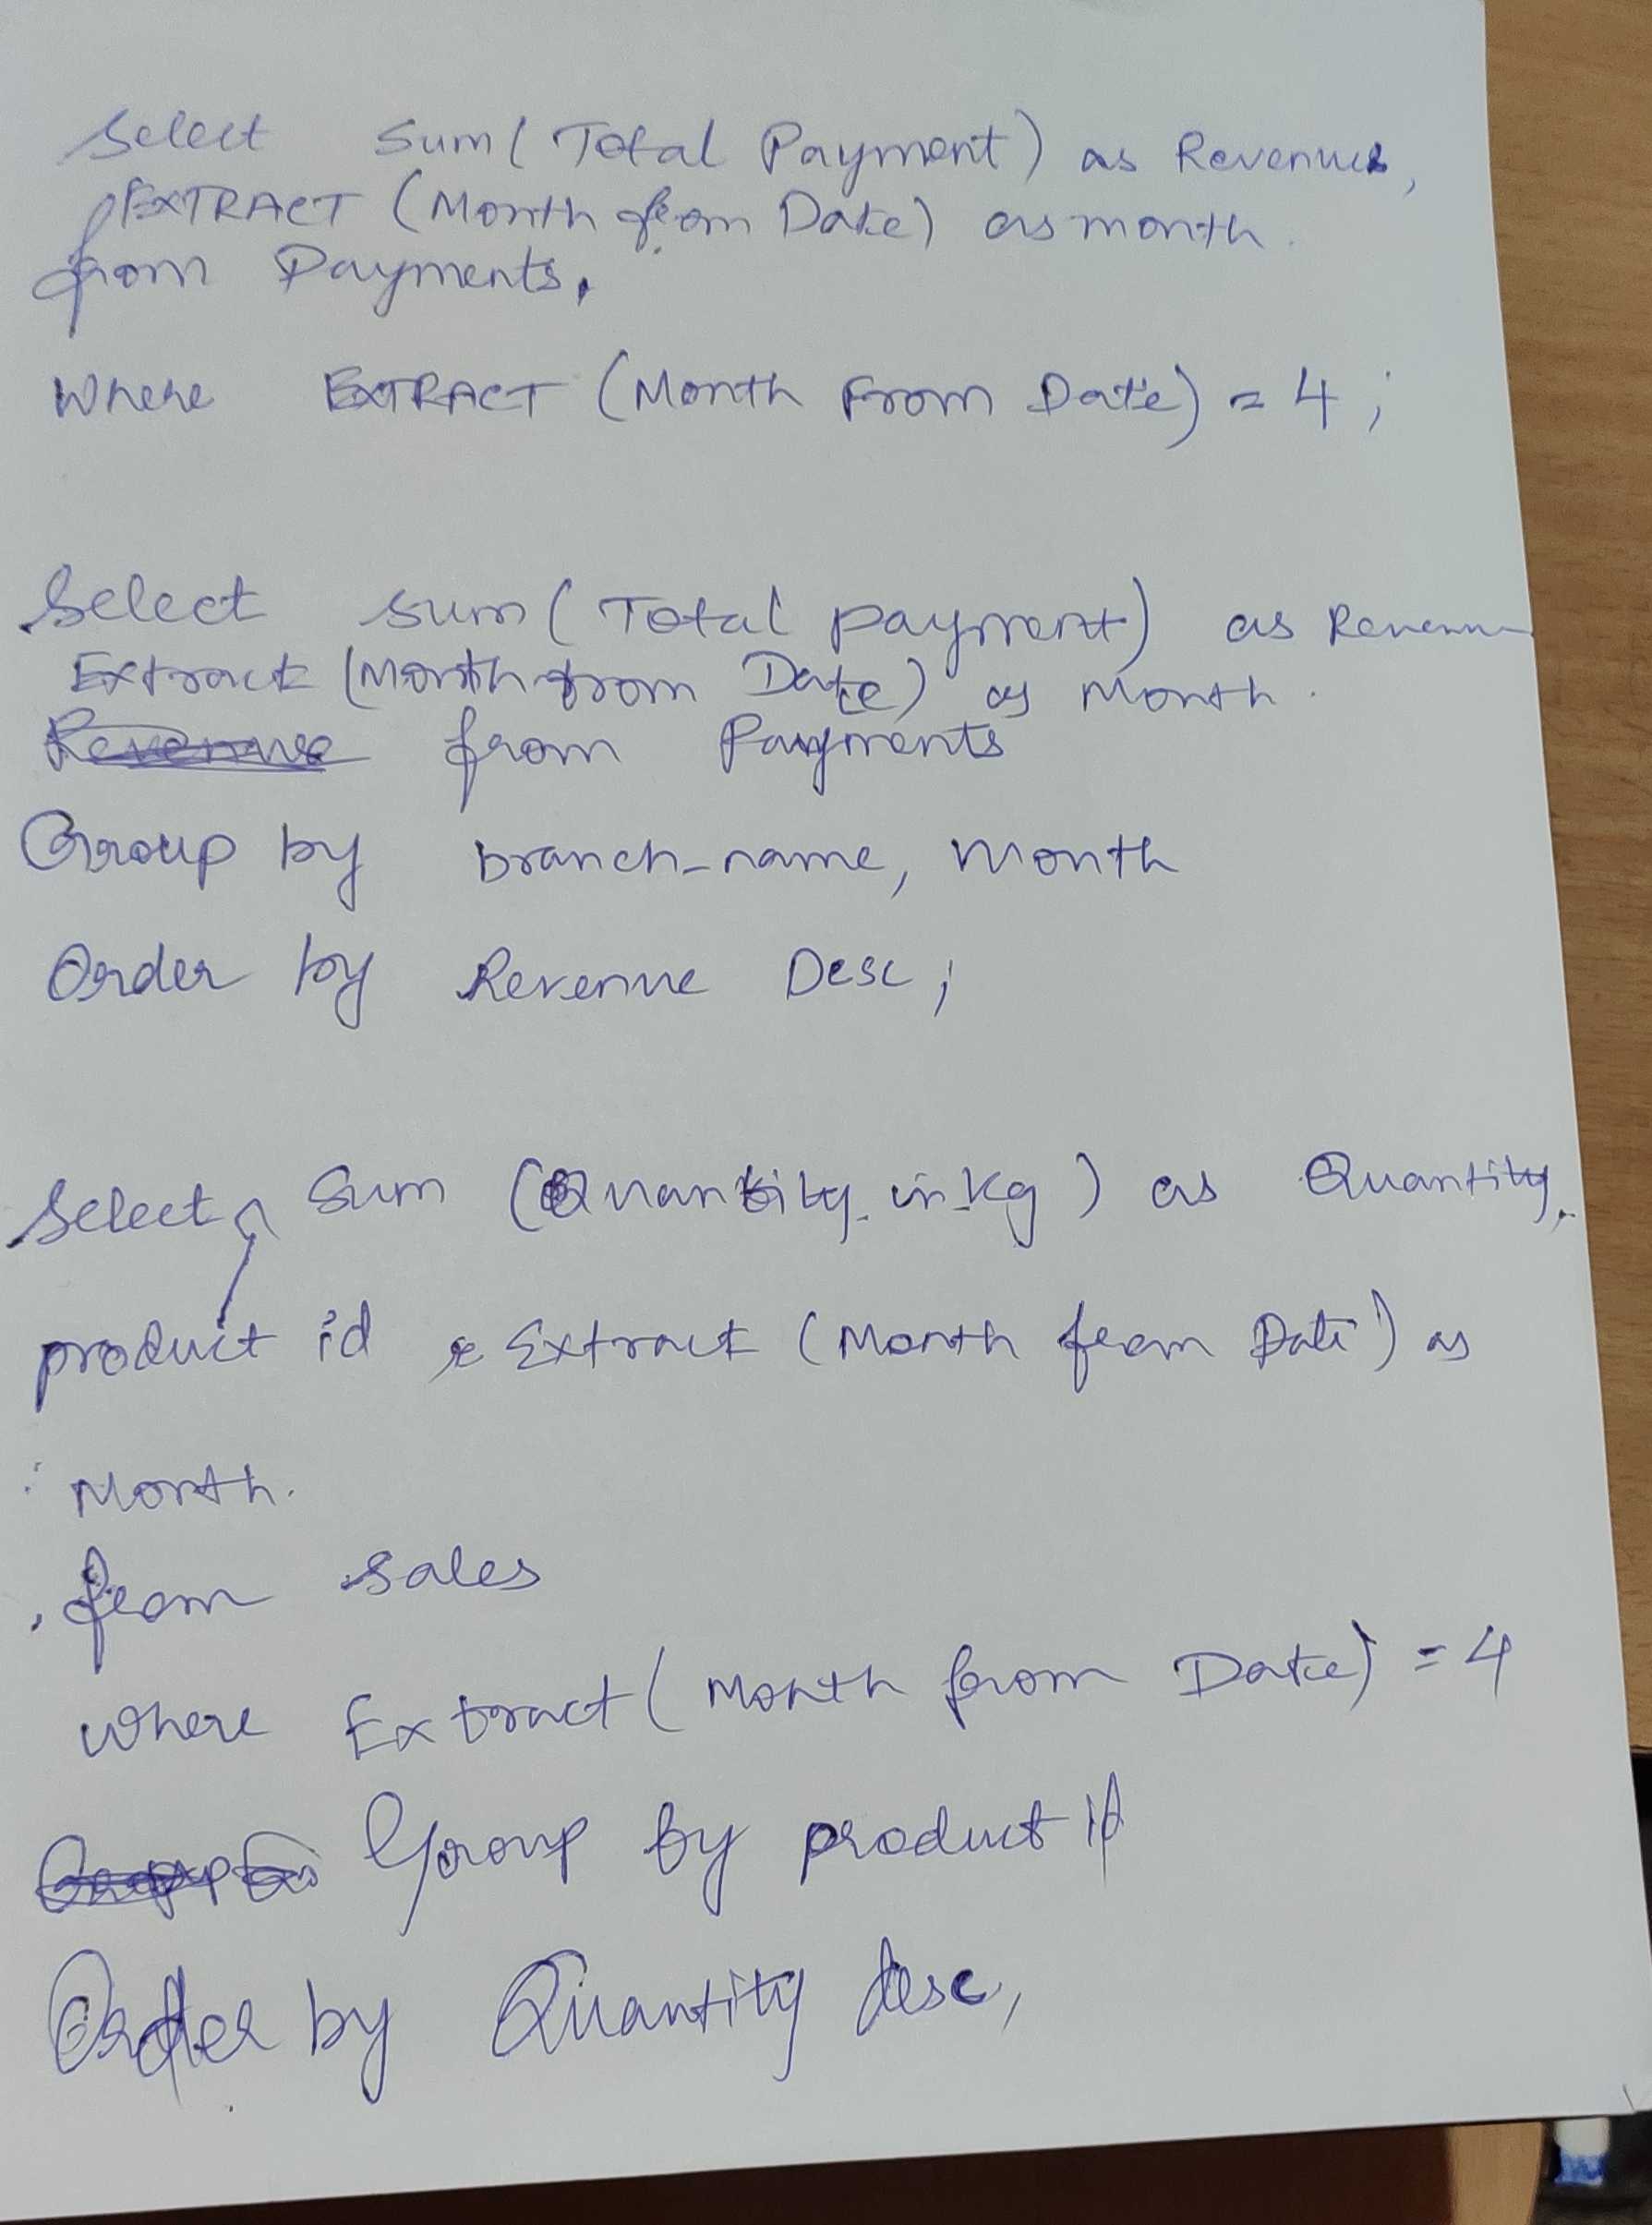 Select Sum( Total Payment) as Revenue,
EXTRACT (Month from Date) as month
from Payments,
Where EXTRACT (Month From Date) = 4 ;
Select sum ( Total payment) as Revenue
Extract (Month from Date) as Month.
Revenue from Payments
Group by branch_name, Month
Order by Revenue Desc ;
Select Sum (Quantity_in_kg ) as Quantity,
product id Extract (Month from Date) as
Month.
from sales
where Extract ( Month from Date) = 4
Group by product id
Order by Quantity desc,